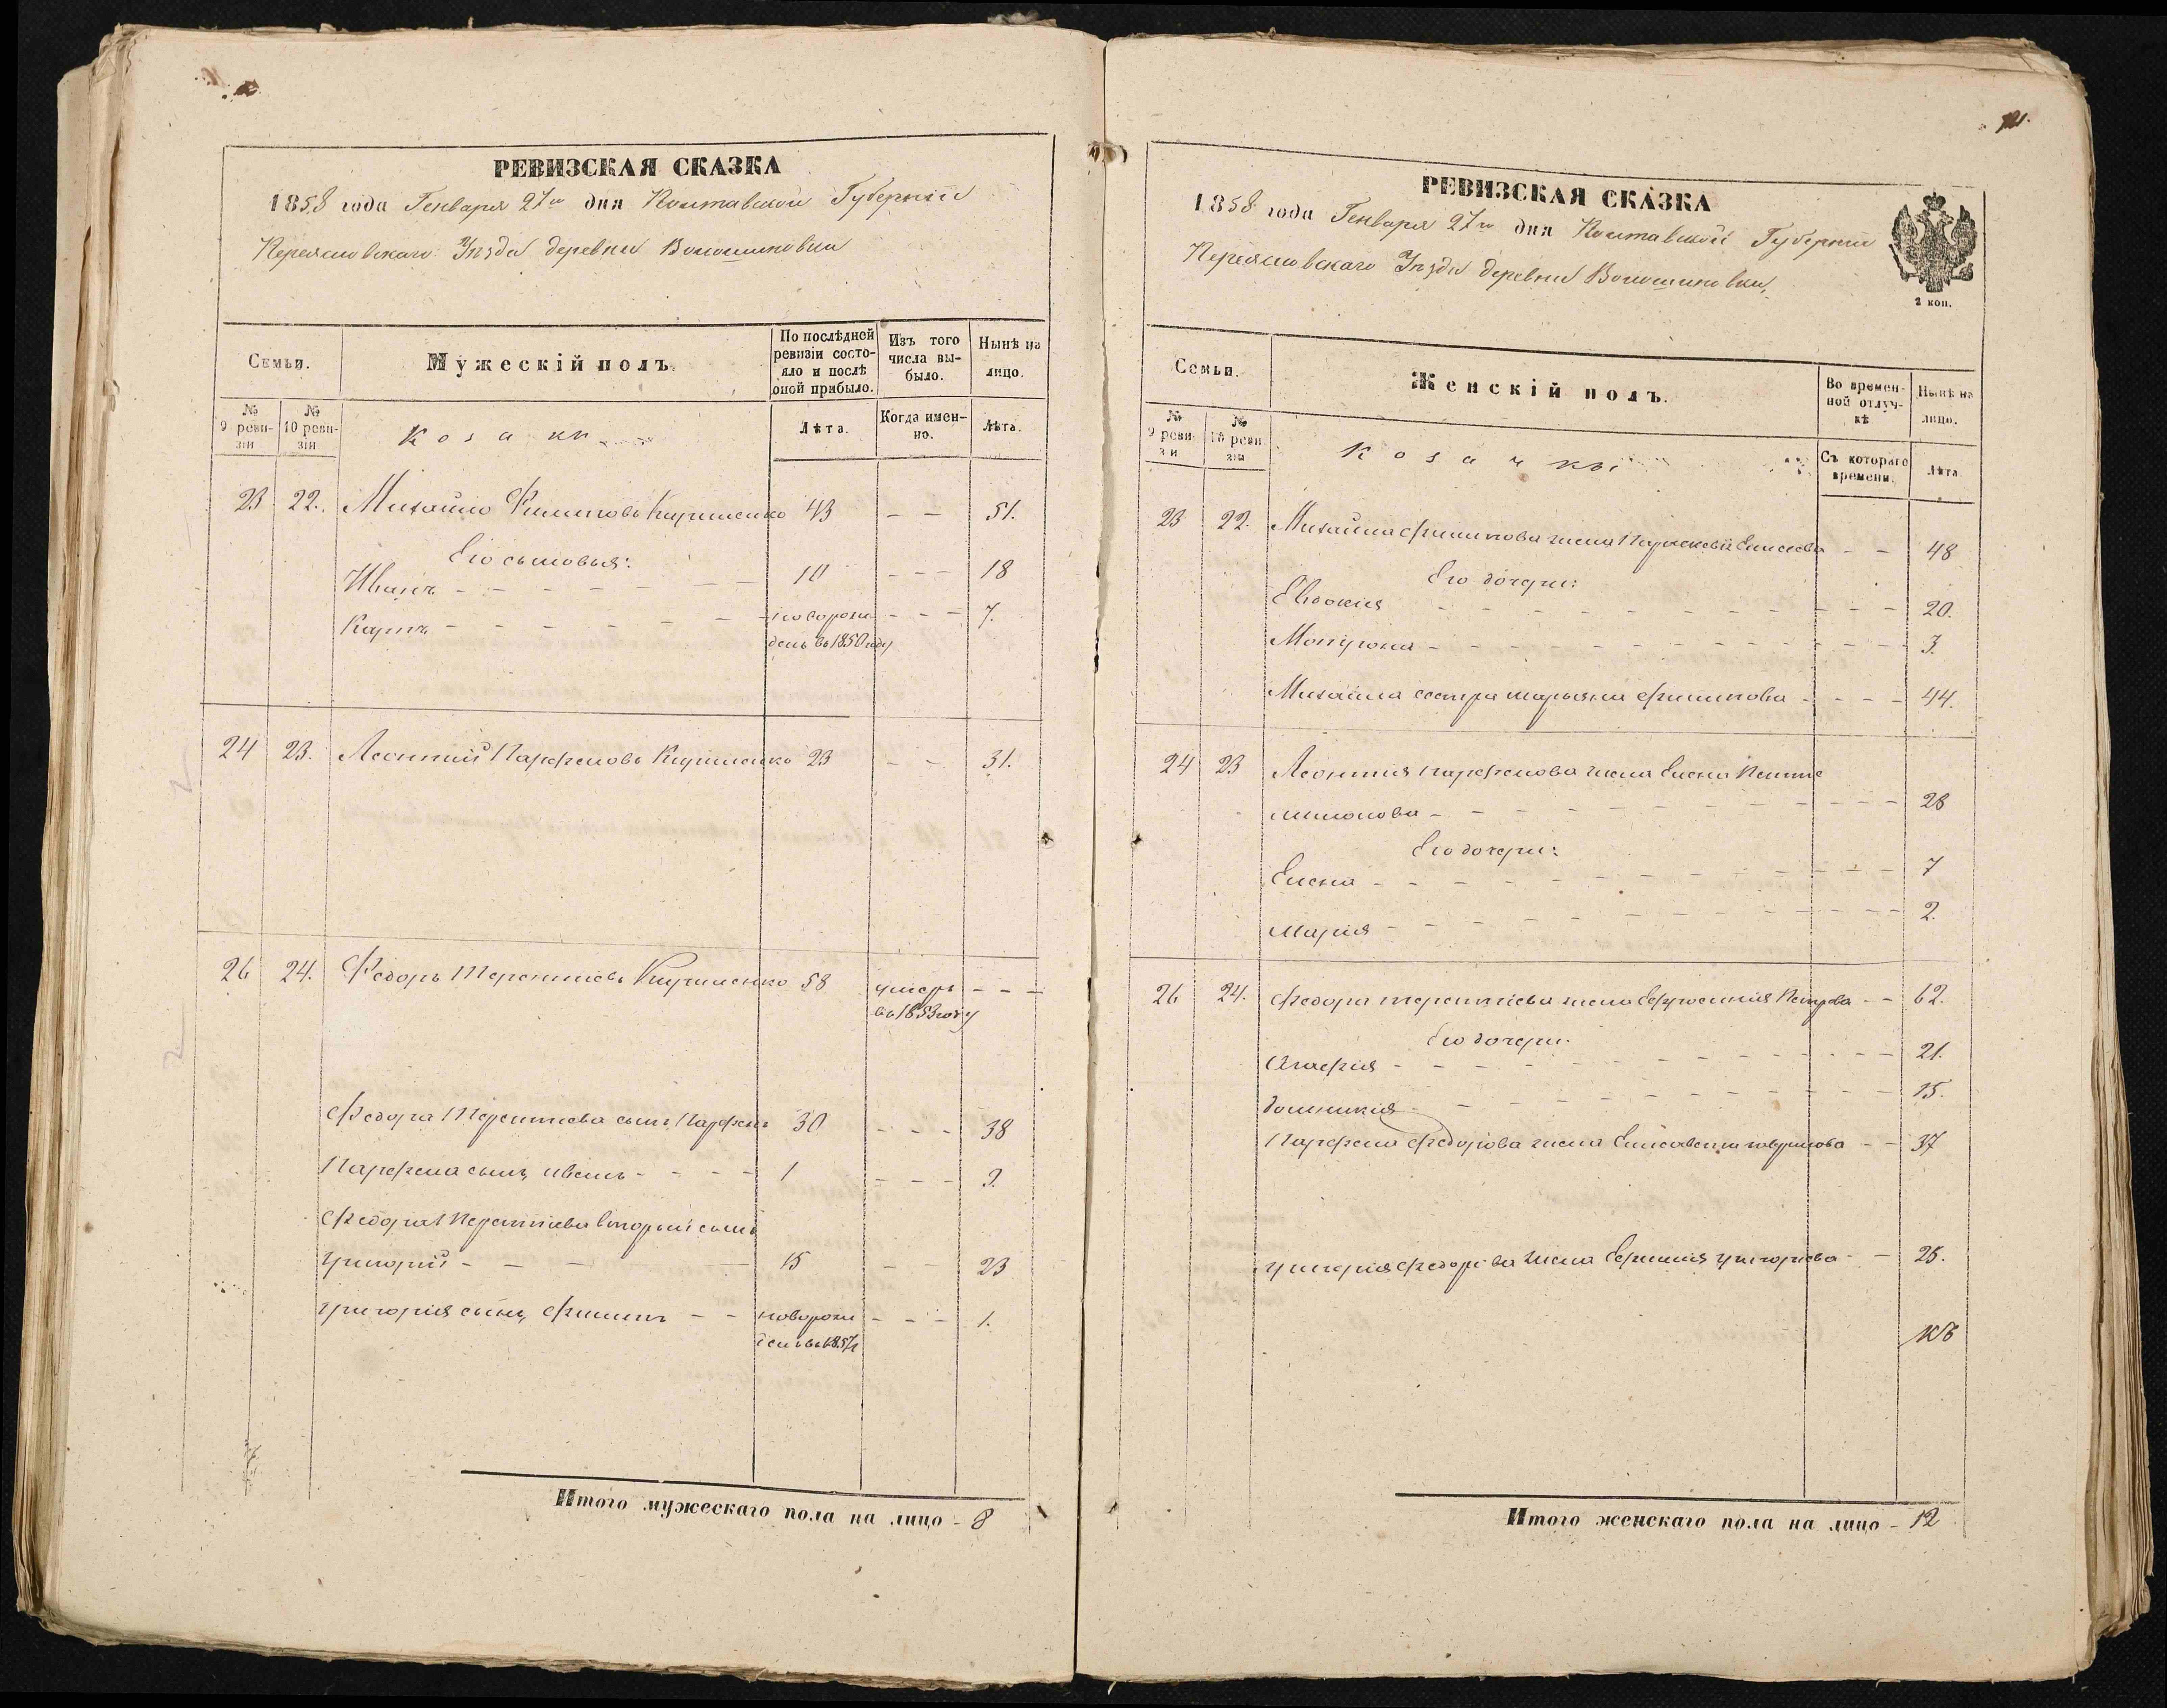 РЕВИЗСКАЯ СКАЗКА
1858 года Генваря 27го дня Полтавской Губернiи
Переяславскаго Уѣзда деревни Волошиновки
Семьи.
Мужескiй полъ.
По послѣдней ревизiи состояло и послѣ оной прибыло.
Изъ того числа выбыло.
Нынѣ на лицо.
№ 9 ревизiи
№ 10 ревизiи
Козаки
Лѣта.
Когда именно.
Лѣта.
23 22. Михайло Филиповъ Кириленко 43 - - 51.
Его сыновья:
Иванъ - - - - - 10 - - - 18
Карпъ - - - - - новорож - - - 7.
денъ въ 1850 году
24 23. Леонтiй Парфеновъ Кириленко 23 - - 31.
26 24. Федоръ Терентiевъ Кириленко 58 умеръ - - -
въ 1853 году
Федора Терентiева сынъ Парфенъ 30 - - - 38
Парфена сынъ Иванъ - - - - 1 - - - 9.
Федора Терентiева вторый сынъ
Григорiй - - - - 15 - - 23
Григорiя сынъ, Филипъ - - новорож - - - 1.
денъ въ 1857 г
Итого мужескаго пола на лицо - 8
121.
РЕВИЗСКАЯ СКАЗКА
1858 года Генваря 27го дня Полтавской Губернiи
Переяславскаго Уѣзда деревни Волошиновки,
2 коп.
Семьи.
Женскiй полъ.
Во временной отлучкѣ
Нынѣ на лицо.
№ 9 ревизiи
№ 10 ревизiи
Козачки
Съ котораго времени.
Лѣта.
23 22. Михайла Филипова жена Параскевiя Елисеева - - 48
Его дочери:
Евдокiя - - - - - 20.
Мотрона - - - - - 3.
Михайла сестра Марьяна Филипова - - - - 44.
24 23 Леонтiя Парфенова жена Елена
- - - - - 28
Его дочери:
Елена - - - - - 7
Марiя - - - - - 2.
26 24. Федора Терентiева жена Ефросинiя Петрова - - 62.
Его дочери:
Агафiя - - - - - 21.
Домникiя - - - - - 15.
Парфена Федорова жена Елисавета - - 37
Григорiя Федорова жена Ефимiя Григорiева - - 25.
Итого женскаго пола на лицо - 12